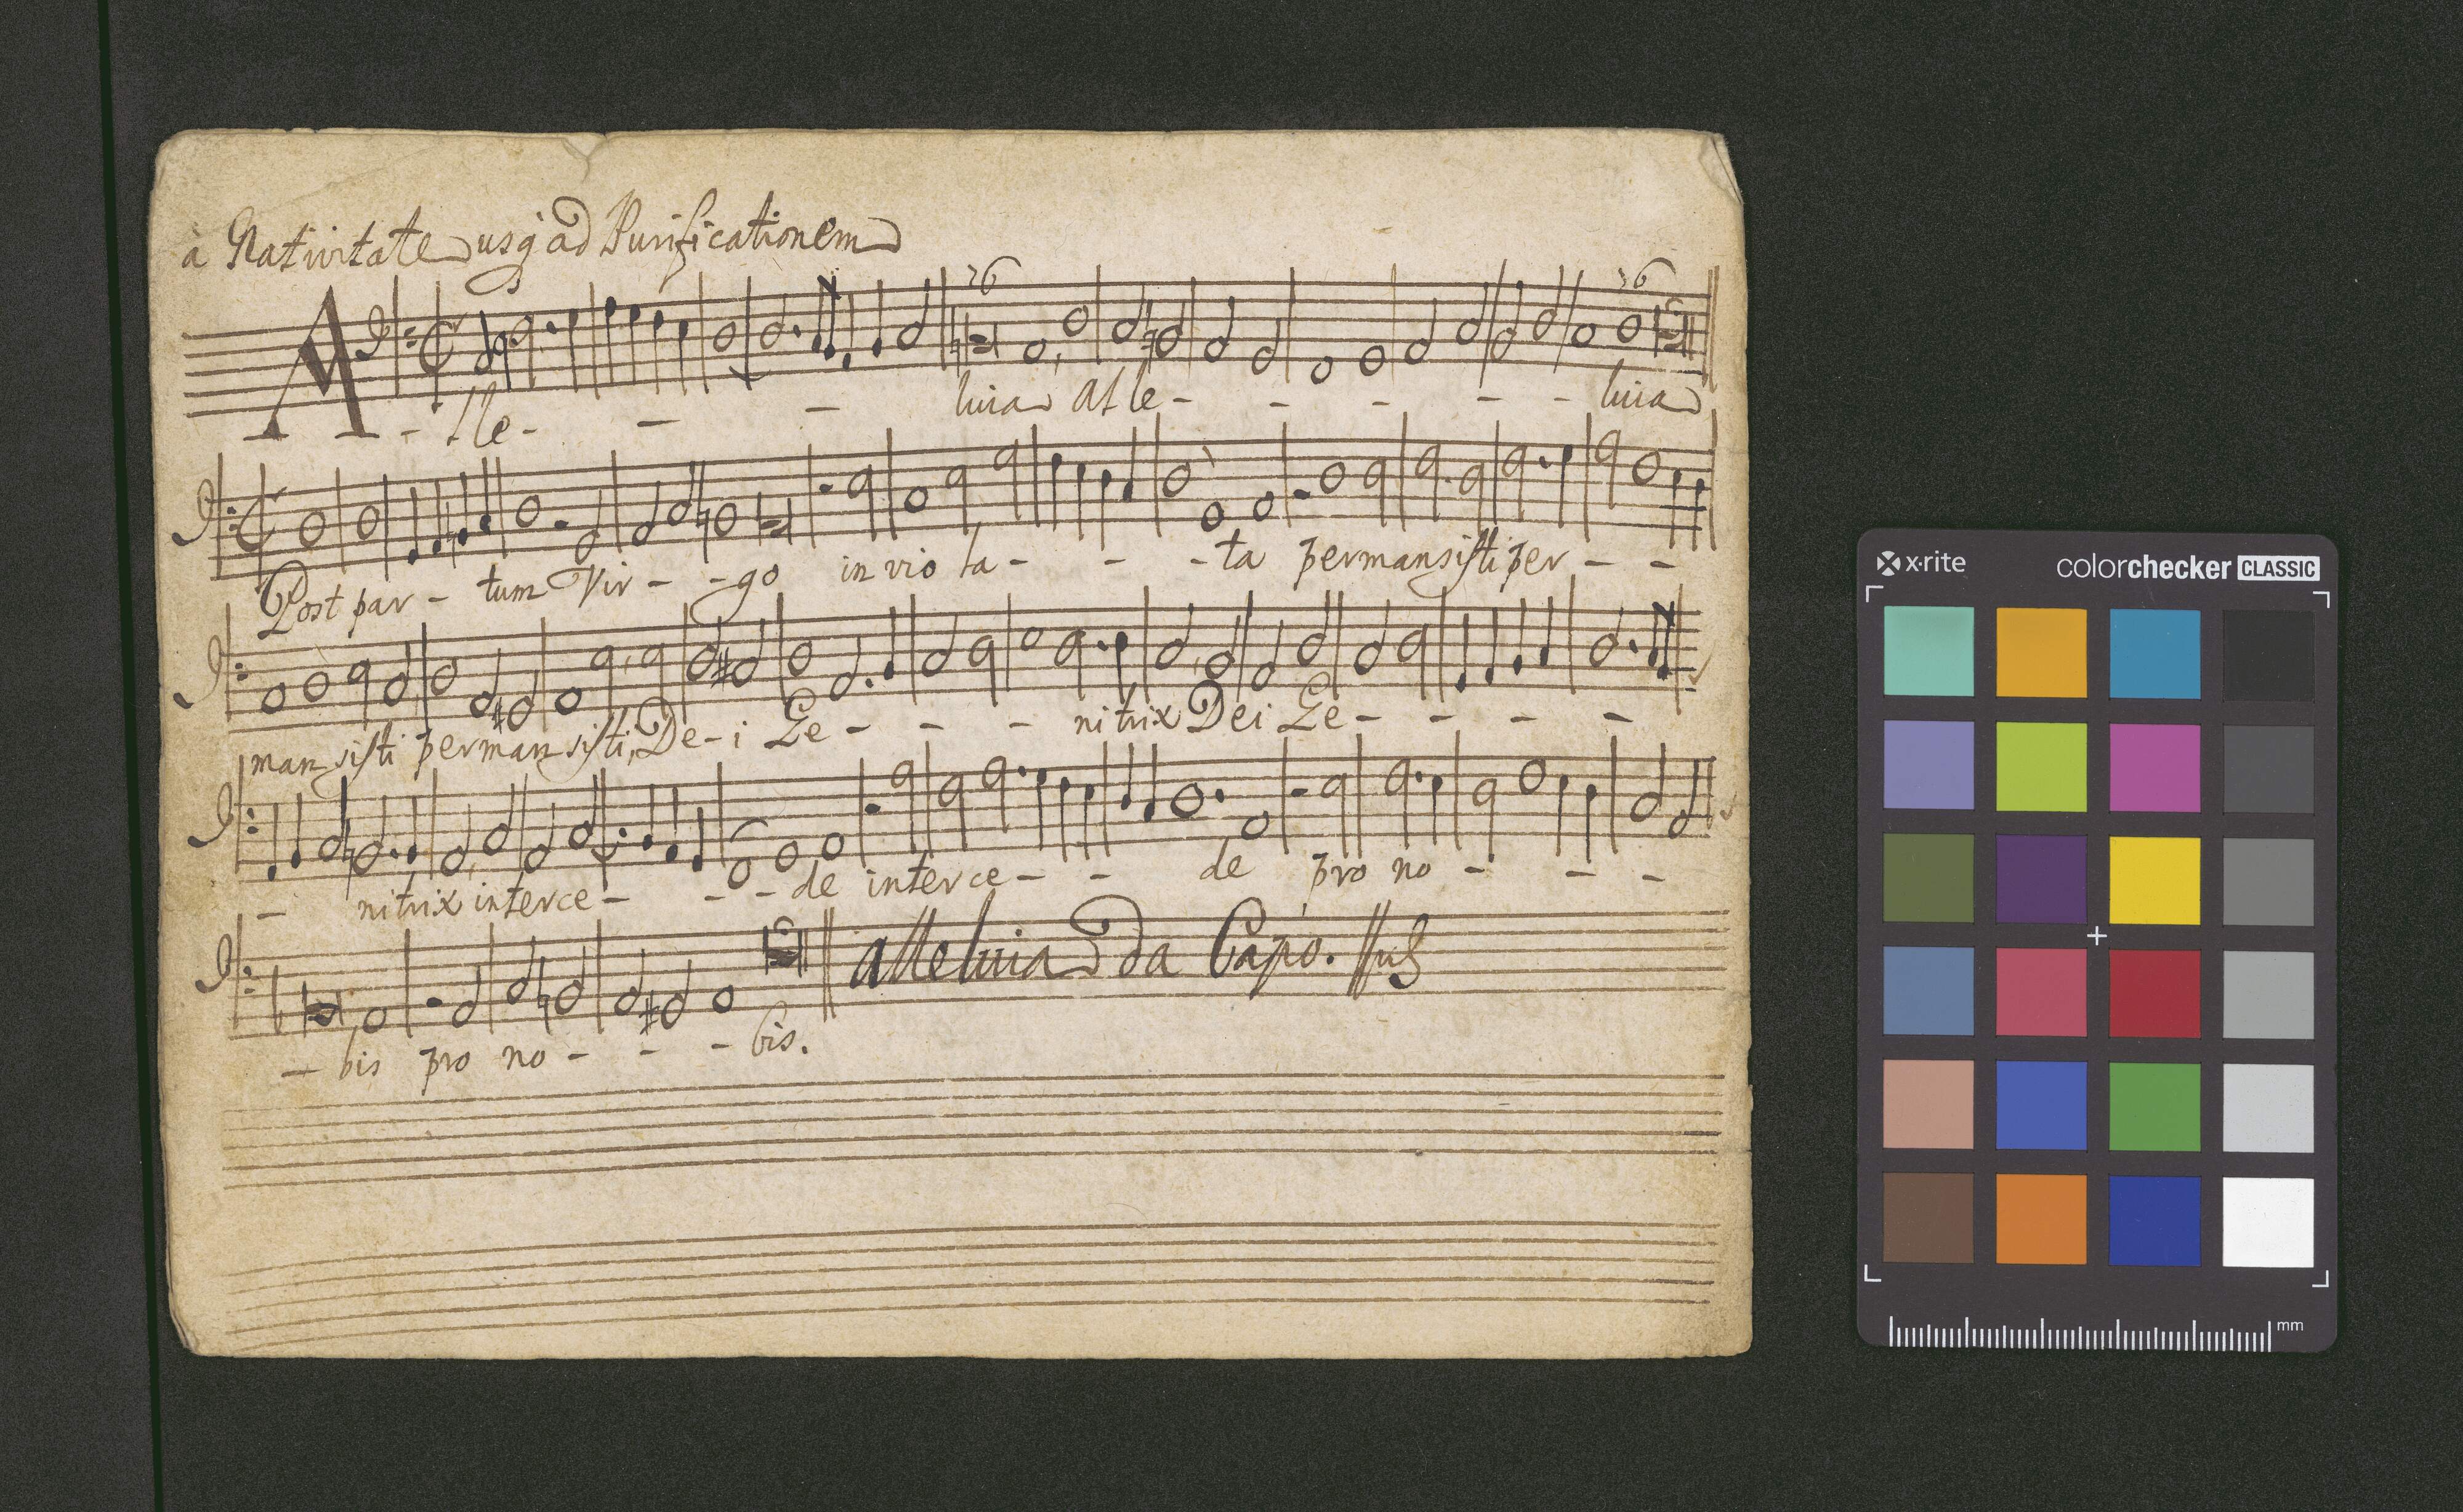 à Nativitate usq ad Purificationem
36 36
A - - - lle - - - luia Alle - - - - - luia
Post par - tum Vir - - go in vio la - - - ta permansisti per - -
mansisti permansisti, De - i Ge - - - nitrix Dei Ge - - - -
- nitrix interce - - - de interce - - de pro no - - -
- bis pro no - - - bis. alleluia da Capo.
x·rite colorchecker CLASSIC
mm